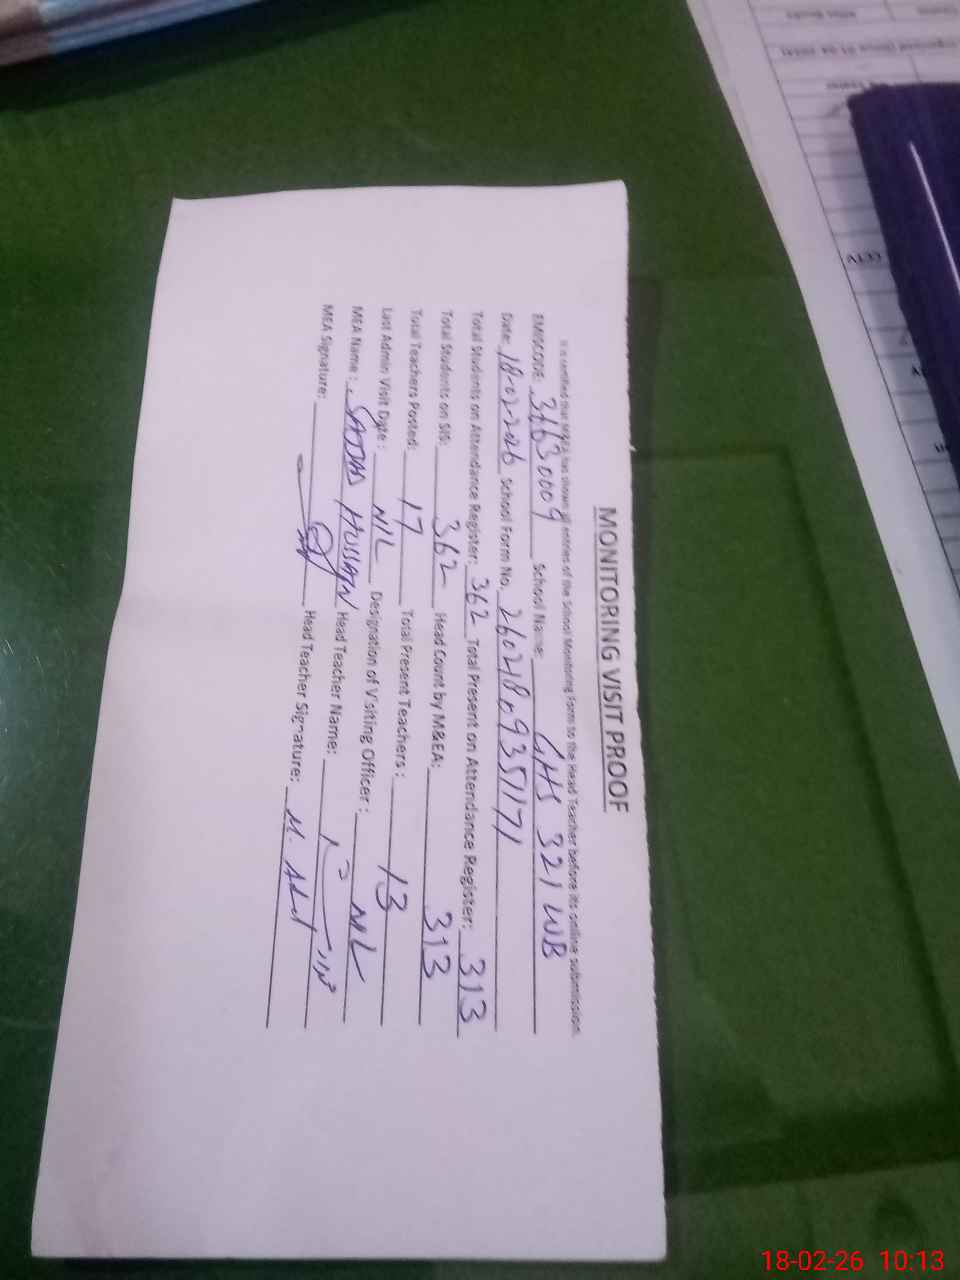 MONITORING VISIT PROOF
It is certified that M&EA has shown all entries of the School Monitoring Form to the Head Teacher before its online submission.
EMISCODE: 36630009 School Name: GHS 321 WB
Date: 18-02-2026 School Form No. 260218093571171
Total Students on Attendance Register: 362 Total Present on Attendance Register: 313
Total Students on SIS: 362 Head Count by M&EA: 313
Total Teachers Posted: 17 Total Present Teachers: 13
Last Admin Visit Date: NIL Designation of Visiting Officer: NIL
MEA Name: SAJJAD HUSSAIN Head Teacher Name:
MEA Signature: Head Teacher Signature:
CCTV
18-02-26 10:13